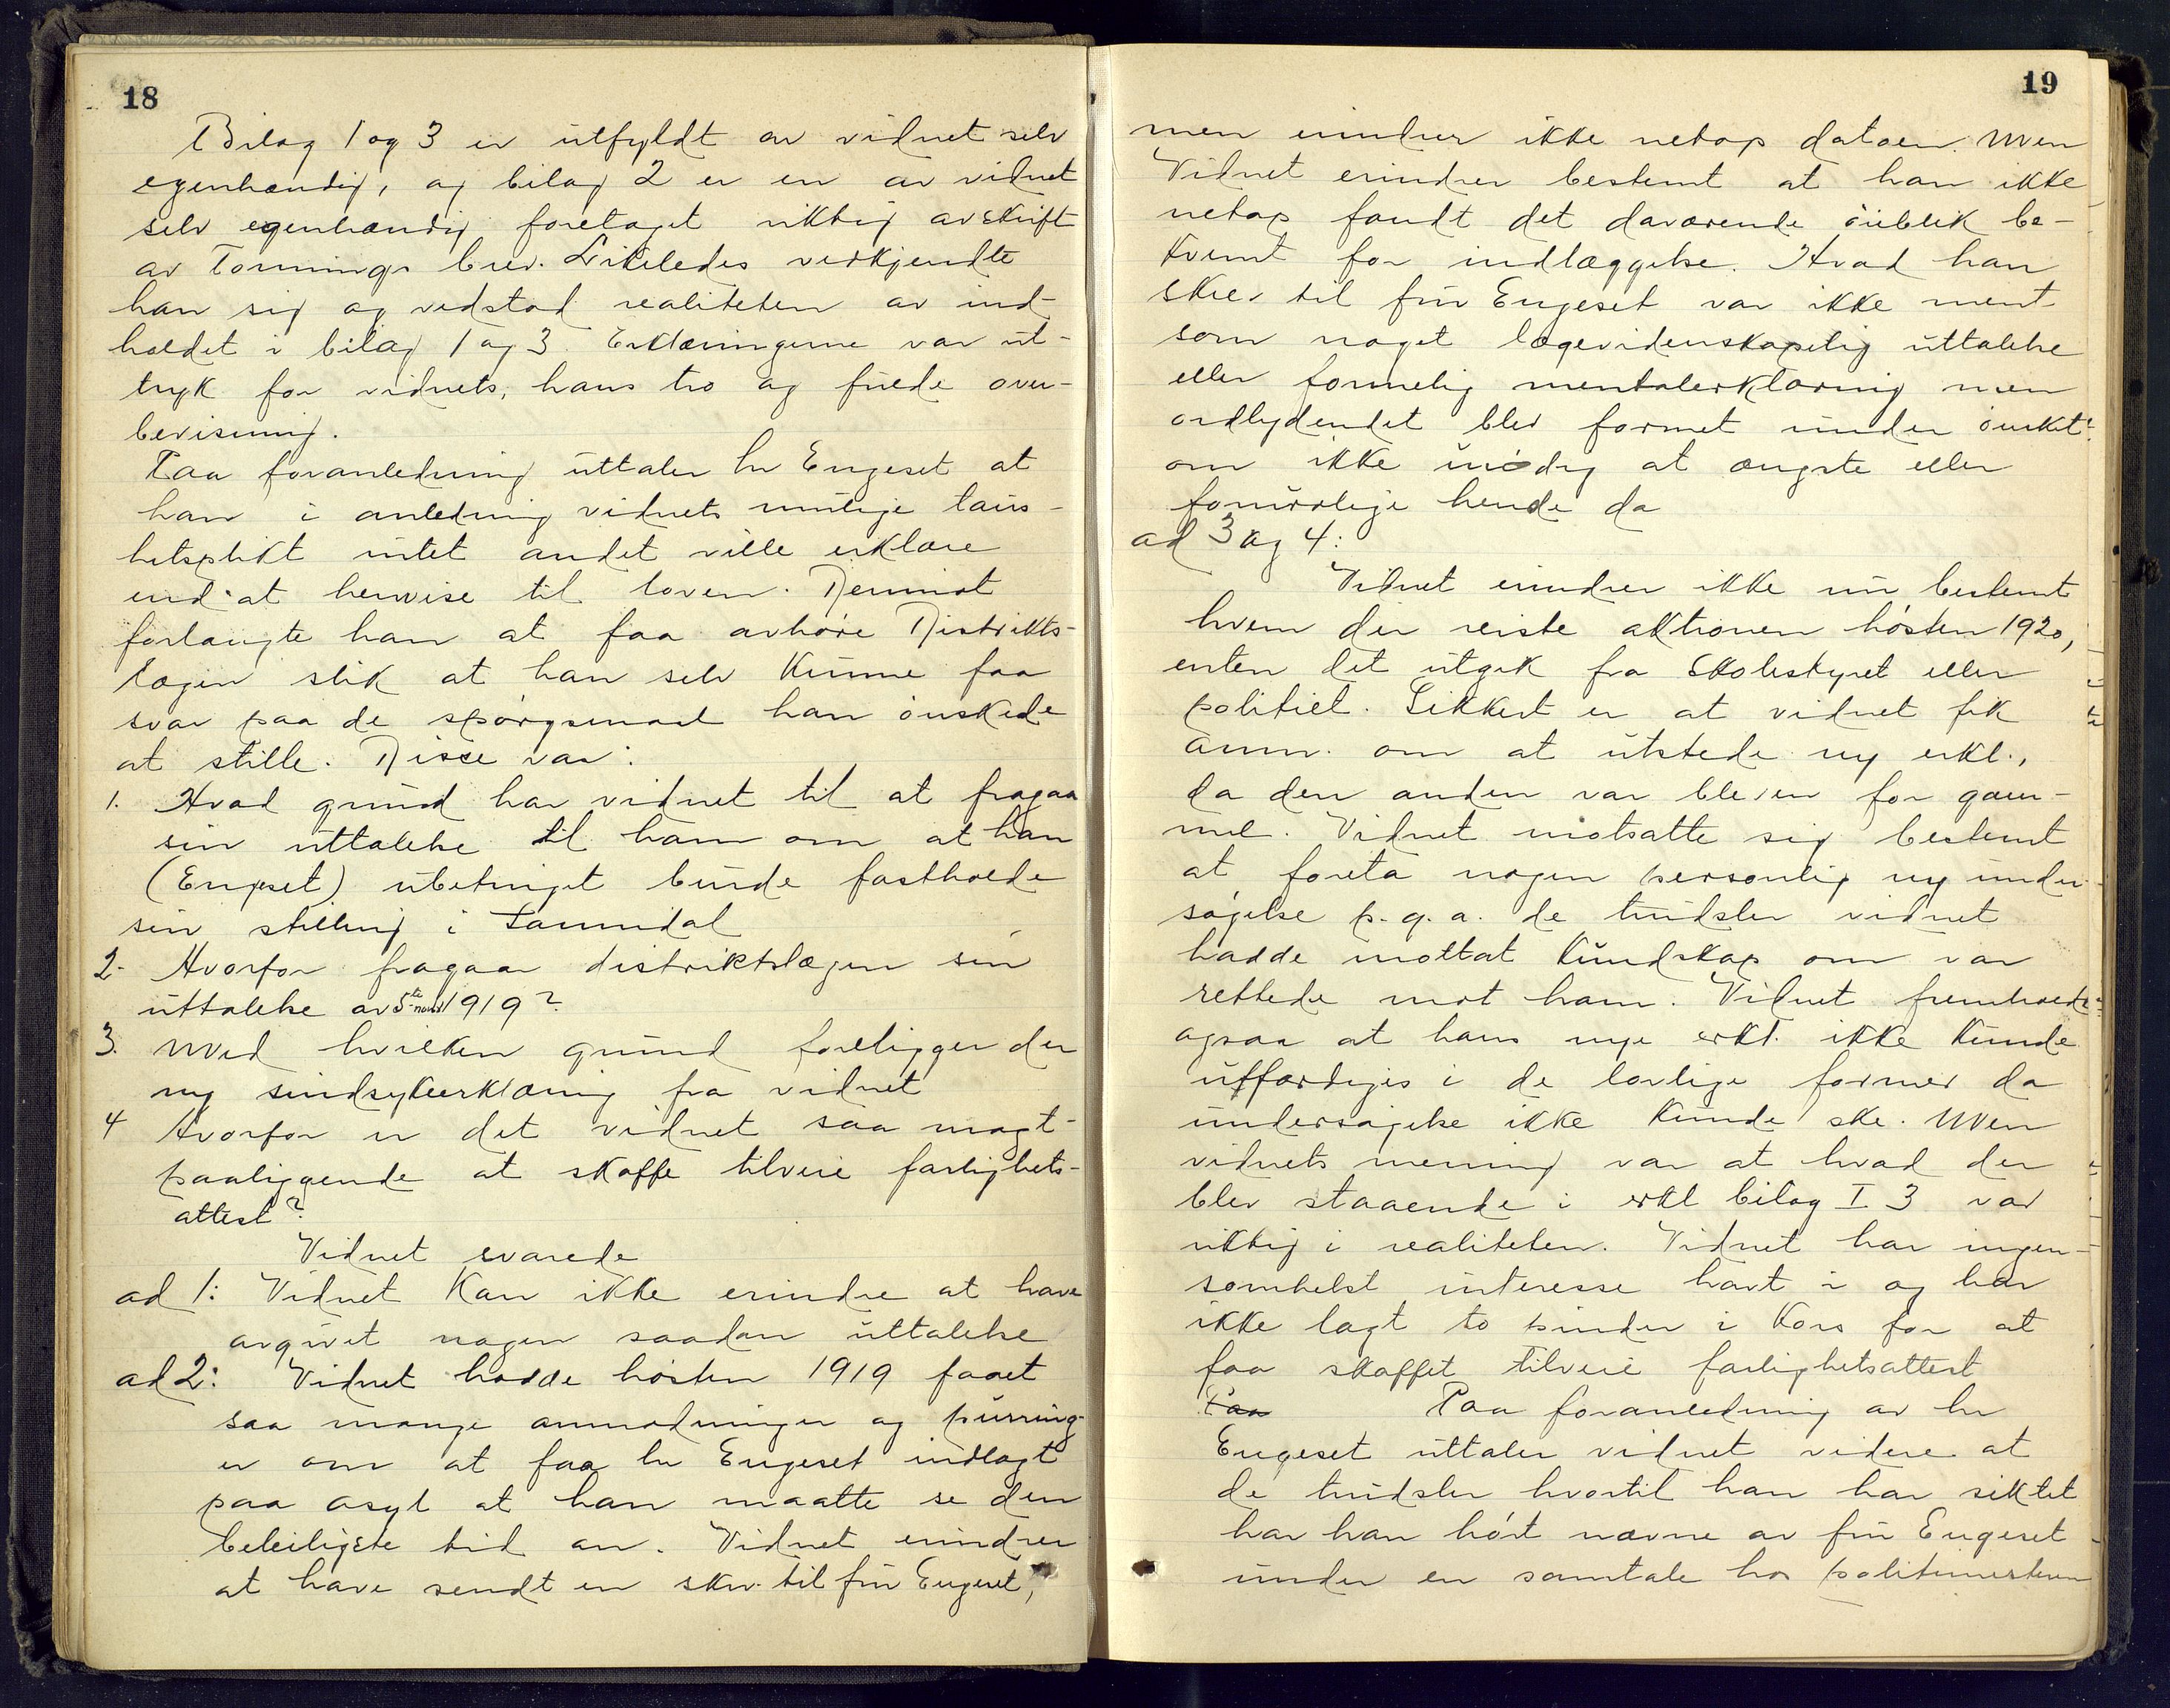 18
Bilag 1 og 3 er utfyldt av vidnet selv
egenhændig, og bilag 2 er en av vidnet
selv egenhændig foretaget riktig avskrift
av Tønnings brev. Likeledes vedkjendte
han sig og vedstod realiteten av ind-
holdet i bilag 1 og 3. Erklæringerne var ut-
tryk for vidnets, hans tro og fulde over-
bevisning.
Paa foranledning uttaler hr Engeset at
han i anledning vidnets mulige taus-
hetsplikt intet andet ville erklære
end at henvise til loven. Derimot
forlangte han at faa avhøre Distrikts-
lægen slik at han selv kunne faa
svar paa de spørgsmaal han ønskede
at stille. Disse var:
1. Hvad grund har vidnet til at fragaa
sin uttalelse til ham om at han
(Engeset) ubetinget burde fastholde
sin stilling i Sannidal
2. Hvorfor fragaar distriktslægen sin
uttalelse av 5te novbr 1919?
3. Med hvilken grund foreligger der
ny sindsykeerklæring fra vidnet
4 Hvorfor er det vidnet saa magt-
paaliggende at skaffe tilveie farlighets-
attest?
Vidnet svarede
ad 1: Vidnet kan ikke erindre at have
avgivet nogen saadan uttalelse
ad 2: Vidnet hadde høsten 1919 faaet
saa mange anmodninger og purring-
er om at faa hr Engeset indlagt
paa asyl at han maatte se den
beleiligste tid an. Vidnet erindrer
at have sendt en skr. til fru Engeset,
19
men erindrer ikke netop datoen. Men
Vidnet erindrer bestemt at han ikke
netop fandt det daværende øieblik be-
kvemt for indlæggelse. Hvad han
skrev til fru Engeset var ikke ment
som noget lægevidenskapelig uttalelse
eller formelig mentalerklæring men
ordlydendet blev formet under ønsket
om ikke unødig at ængste eller
foruroolige hende da
ad 3 og 4:
Vidnet erindrer ikke nu bestemt
hvem der reiste aktionen høsten 1920,
enten det utgik fra Skolestyret eller
politiet. Sikkert er at vidnet fik
anm. om at utstede ny erkl.,
da den anden var bleven for gam-
mel. Vidnet motsatte sig bestemt
at foreta nogen personlig ny under-
søgelse p.g.a. de trudsler vidnet
hadde mottat kundskap om var
rettede mot ham. Vidnet fremholdt
ogsaa at hans nye erkl. ikke kunde
utfærdiges i de lovlige former da
undersøgelse ikke kunde ske. Men
vidnets mening var at hvad der
blev staaende i erkl bilag I 3 var
riktig i realiteten. Vidnet har ingen-
somhelst interesse havt i og har
ikke lagt to pinder i kors for at
faa skaffet tilveie farlighetsattest
Paa Paa foranledning av hr
Engeset uttaler vidnet videre at
de trudsler hvortil han har siktet
har han hørt nævne av fru Engeset
under en samtale hos politimesteren